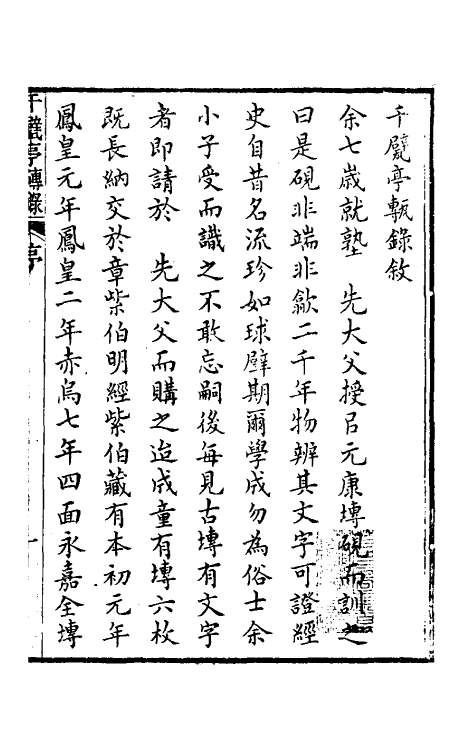 千甓亭甎錄敘
余七歲就塾　先大父授㠯元康塼硯而訓之
曰是硯非端非歙二千年物辨其文字可證經
史自昔名流珍如球璧期爾學成勿為俗士余
小子受而識之不敢忘嗣後每見古塼有文字
者即請於　先大父而購之迨成童有塼六枚
既長納交於章紫伯明經紫伯藏有本初元年
鳳皇元年鳳皇二年赤烏七年四面永嘉全塼
千甓亭塼錄